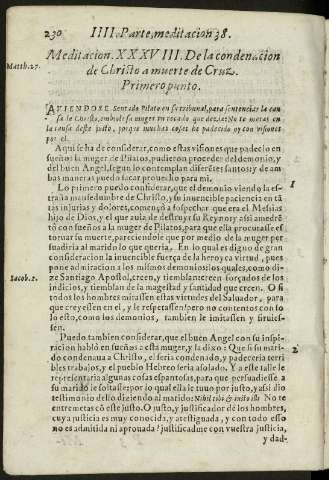 230 IIII. Parte, meditacion 38.
Meditacion. XXXVIII. De la condenacion
Matth. 27.
de Christo a muerte de Cruz.
Primero punto.
AVIENDOSE sentado Pilato en su tribunal, para sentenciar la cau
sa de Christo, embiole su muger un recado que dezia: No te metas en
la causa deste justo, porque muchas cosas he padecido oy con visiones
por el.
Aqui se ha de considerar, como estas visiones que padecio en
sueños la muger de Pilatos, pudieron proceder del demonio, y
del buen Angel, segun lo contemplan diferentes santos; y de am
bas maneras puedo sacar prouecho para mi.
1
Lo primero puedo considerar, que el demonio viendo la es-
traña mansedumbre de Christo, y su inuencible paciencia en tã
tas injurias y dolores, començò a sospechar que era el Messias
hijo de Dios, y el que auia de destruyr su Reyno: y assi amedrẽ
tò con sueños a la muger de Pilatos, para que ella procurasse es
toruar su muerte, pareciendole que por medio de la muger per
suadiria al marido lo que queria. En lo qual es digno de gran
consideracion la inuencible fuerça de la heroyca virtud, pues
pone admiracion a los mismos demonios: los quales, como di-
Iacob. 2.
ze Santiago Apostol, creen, y tiemblan: creen forçados de los
indicios, y tiemblan de la magestad y santidad que creen. O si
todos los hombres mirassen estas virtudes del Saluador, para
que creyessen en el, y le respetassen! pero no contentos con so
lo esto, como los demonios, tambien le imitassen y siruies-
sen.
2
Puedo tambien considerar, que el buen Angel con su inspi-
racion hablò en sueños a esta muger, y la dixo: Que si su mari-
do condenaua a Christo, el seria condenado, y padeceria terri
bles trabajos, y el pueblo Hebreo seria asolado. Y a este talle le
representaria algunas cosas espantosas, para que persuadiesse a
su marido le soltasse: por lo qual ella le tuuo por justo, y assi dio
testimonio dello diziendo al marido: Nihil tibi & iusto illi. No te
entremetas cõ este justo. O justo, y justificador de los hombres,
cuya justicia es muy conocida, y atestiguada, y con todo esso
no es admitida ni aprouada! justificadme con vuestra justicia,
y dad-